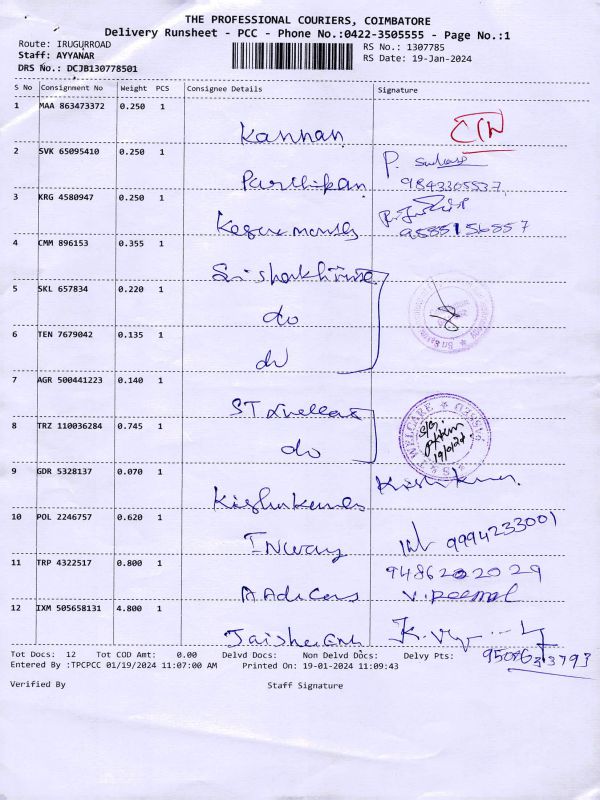 THE PROFESSIONAL COURIERS, COIMBATORE
Delivery Runsheet - PCC - Phone No.:0422-3505555 - Page No.:1
Route: IRUGURROAD
RS No.: 1307785
Staff: AYYANAR
RS Date: 19-Jan-2024
DRS No.: DCJB130778501
S No Consignment No Weight PCS Consignee Details Signature
1 MAA 863473372 0.250 1
Kannan
2 SVK 65095410 0.250 1
Parthipan P.
9843305537
3 KRG 4580947 0.250 1
9585156857
4 CMM 896153 0.355 1
5 SKL 657834 0.220 1
do
6 TEN 7679042 0.135 1
do
7 AGR 500441223 0.140 1
ST
WELCARE
8 TRZ 110036284 0.745 1
do
9 GDR 5328137 0.070 1
10 POL 2246757 0.620 1
INWay 9994233001
11 TRP 4322517 0.800 1
9486202029
12 IXM 505658131 4.800 1
Tot Docs: 12 Tot COD Amt: 0.00 Delvd Docs: Non Delvd Docs: Delvy Pts:
Entered By :TPCPCC 01/19/2024 11:07:00 AM Printed On: 19-01-2024 11:09:43
Verified By Staff Signature